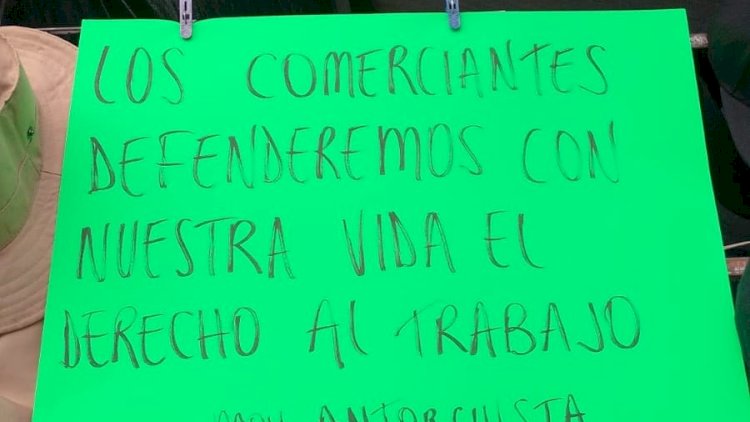 LOS COMERCIANTES
DEFENDEREMOS CON
NUESTRA VIDA EL
DERECHO AL TRABAJO
MOV. ANTORCHISTA